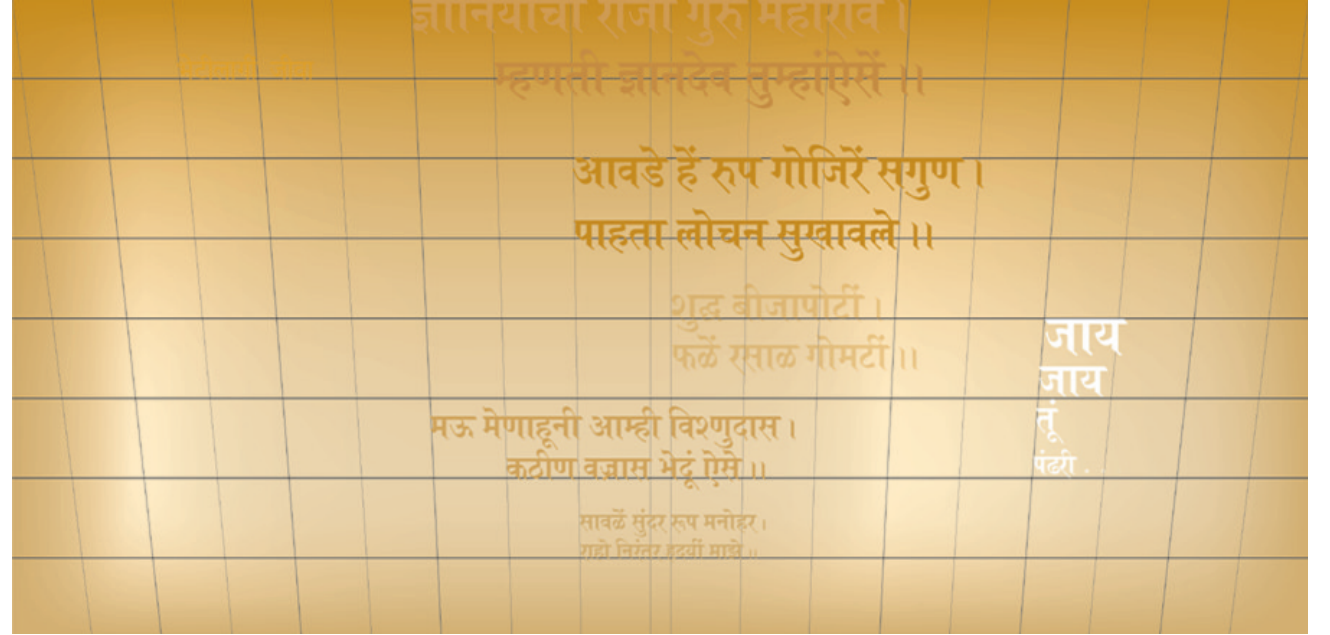 ज्ञानियांचा राजा गुरु महाराव ।
म्हणती ज्ञानदेव तुम्हांऐसें ।।
आवडे हें रुप गोजिरें सगुण ।
पाहता लोचन सुखावले ।।
शुद्ध बीजापोटीं ।
फळें रसाळ गोमटीं ।।
मऊ मेणाहूनी आम्ही विश्णुदास ।
कठीण वज्रास भेदूं ऐसे ।।
सावळें सुंदर रूप मनोहर ।
राहो निरंतर हृदयीं माझे ॥
जाय
जाय
तूं
पंढरी . .